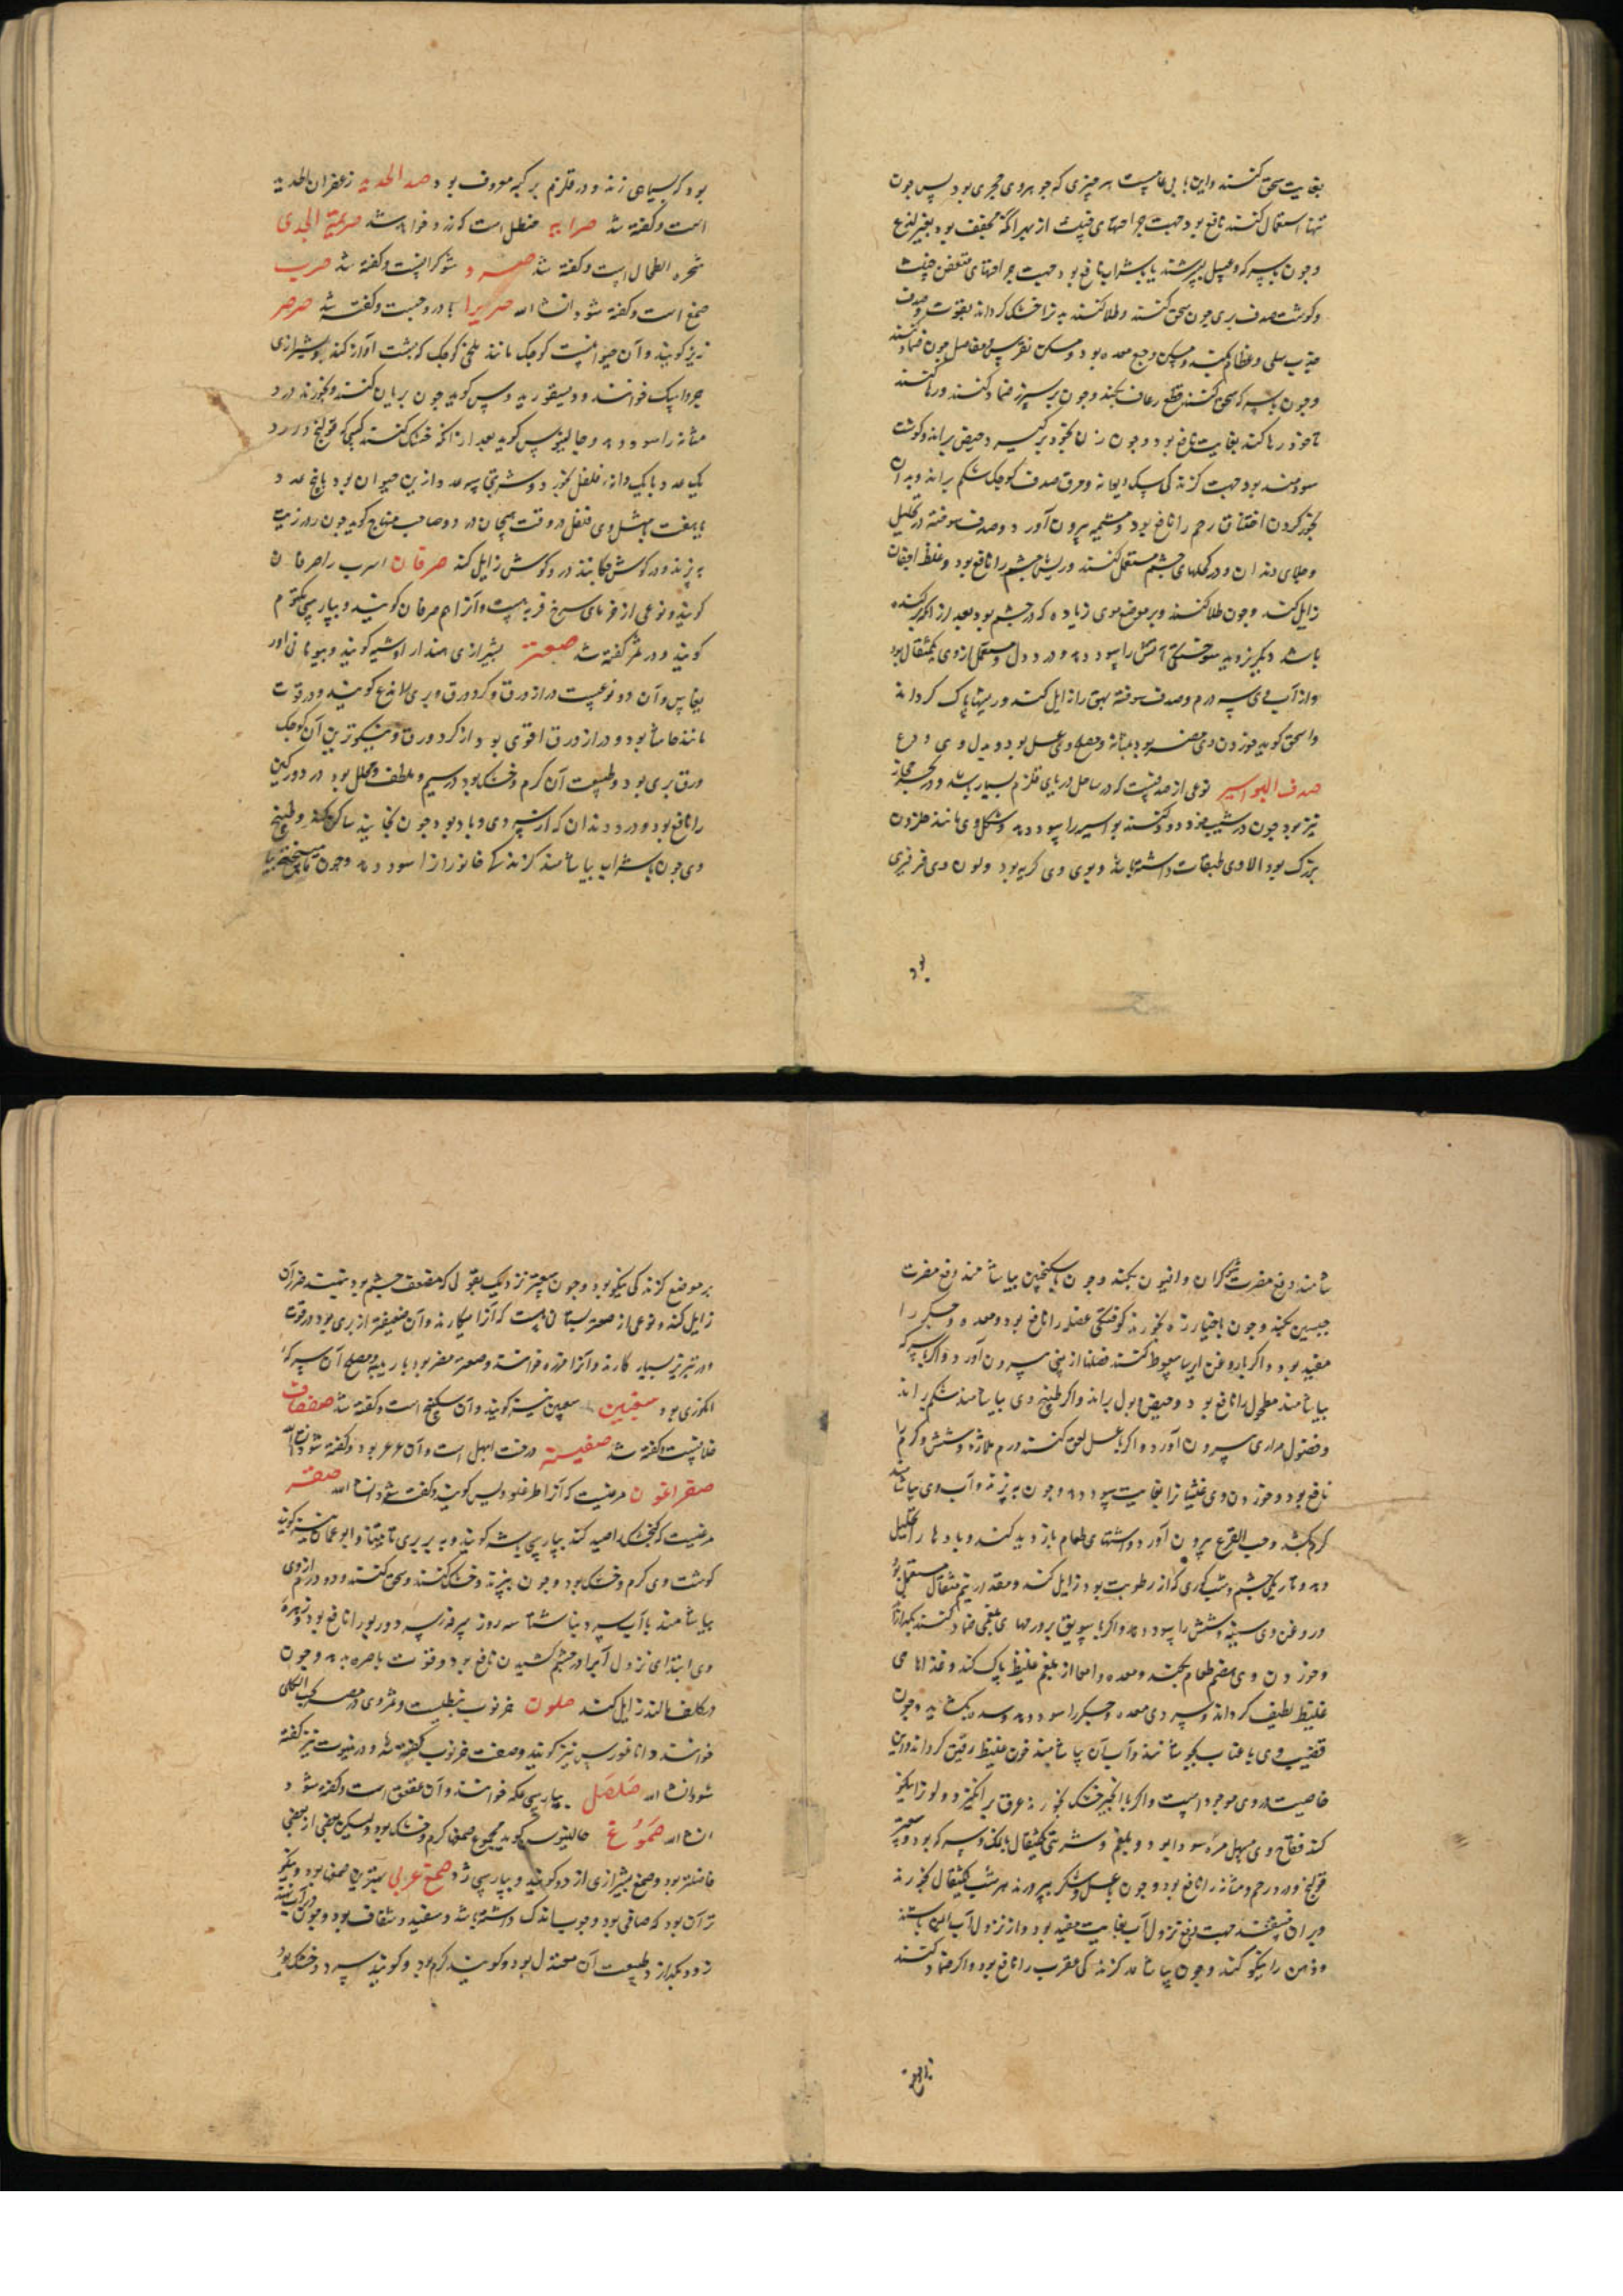 بغایت سحق کنند و این با بی خاصیت هر چیزی که جوهر وی حجری بود پس چون
تنها استعمال کنند نافع بود جهت جراحتهای خبیث از بهر آنکه مجفف بود بغیر لذع
و چون با سرکه و عسل بسرشند یا با شراب نافع بود جهت جراحتهای متعفن خبیث
و گوشت صدف بری چون سحق کنند و طلا کنند بدن را خشک گرداند بقوت و صدف
و مسکن وجع معده بود و مسکن نقرس و مفاصل چون ضماد کنند
و چون با سرکه سحق کنند قطع رعاف بکند و چون بر سپرز ضماد کنند و رها کنند
تا خود رها کند بغایت نافع بود و چون زنان بخود برگیرند حیض براند و گوشت
سودمند بود جهت گزندگی سگ دیوانه و مرق صدف کوچک شکم براند و بدان
بخور کردن اختناق رحم را نافع بود و مشیمه بیرون آورد و صدف سوخته در تحلیل
و جلای دندان و در کحلهای چشم مستعمل کنند و ریش چشم را نافع بود و غلظ اجفان
زایل کند و چون طلا کنند بر موضع موی زیاده که در چشم بود بعد از آنکه برکنده
باشد دیگر نروید سوختگی آتش را سود دهد و درد دل و مستعمل از وی یکمثقال بود
و از آب وی سه درم و صدف سوخته بهق را زایل کند و ریشها پاک گرداند
و اسحق گوید خوردن وی مضر بود بمثانه و مصلح وی عسل بود و بدل وی ودع
صدف البواسیر نوعی از صدفیست که در ساحل دریای قلزم بسیار باشد و در بحر حجاز
نیز بود چون در شیب خود دود کنند بواسیر را سود دهد و شکل وی مانند حلزون
بزرگ بود الا وی طبقات داشته باشد و بوی وی کریه بود و لون وی فرفیری
بود
بود که بسیاهی زند و در قلزم بر کبه معروف بود صدا الحدید زعفران الحدید
است و گفته شد صرابه حنظل است که زرد خوانند شد صریمة الجدی
شجره الطحال است و گفته شد صمرد شوکرانست و گفته شد صرب
صمغ است و گفته شود انشاء الله صریرا بادروجست و گفته شد صرصر
نیز گویند و آن حیوانیست کوچک مانند ملخی کوچک که بشب آواز کند و بشیرازی
جردابک خوانند و دیسقوریدوس گوید چون بریان کنند و بخورند درد
مثانه را سود دهد و جالینوس گوید بعد از آنکه خشک کنند کسی که قولنج دارد
یک عدد با یک دانه فلفل بخورد و شربتی سه عدد ازین حیوان بود یا پنج عدد
یا هفت بمثل وی فلفل در وقت هیجان درد و صاحب منهاج گوید چون در زیت
بپزند و در گوش چکانند درد گوش زایل کند صرفان اسرب را صرفان
گویند و نوعی از خرمای سرخ فربه است و آنرا هم صرفان گویند و بپارسی مکتوم
گویند و در تمر گفته شد صعتر بشیرازی اوشه گویند و بیونانی اور
یغانس و آن دو نوعست دراز ورق و گرد ورق و بری لاذع گویند و در قوت
مانند حاشا بود و دراز ورق اقوی بود از گرد ورق و نیکوترین آن کوچک
ورق بری بود و طبیعت آن گرم و خشک بود در سیم و ملطف و محلل بود درد ورکین
را نافع بود و درد دندان که از سردی و باد بود چون بخایند ساکن کند و طبیخ
وی چون با شراب بیاشامند گزندگی جانوران را سود دهد و چون با میبختج بیا
شامند دفع مضرت شوکران و افیون بکند و چون با سکنجبین بیاشامند دفع مضرت
جبسین بکند و چون با خیار تازه بخورند کوفتگی عضله را نافع بود و معده و جگر را
مفید بود و اگر با روغن ایرسا سعوط کنند فضلها از بینی بیرون آورد و اگر با سرکه
بیاشامند مطحول را نافع بود و حیض و بول براند و اگر طبیخ وی بیاشامند شکم براند
و فضول مراری بیرون آورد و اگر با عسل لعق کنند ورم ملازه و شش و گرم را
نافع بود و خوردن وی غثیان را بغایت سود دهد و چون بپزند و آب وی بیاشامند
کرم بکشد و حب القرع بیرون آورد و اشتهای طعام بازدید کند و بادها را تحلیل
دهد و تاریکی چشم و شبکوری که از رطوبت بود زایل کند و مقدار نیم مثقال مستعمل بود
و روغن وی سینه و شش را سود دهد و اگر با سویق بر ورمهای بلغمی ضماد کنند بگدازد
و خوردن وی هضم طعام بکند و معده و امعا از بلغم غلیظ پاک کند و غذاهای
غلیظ لطیف گرداند و سردی معده و جگر را سود دهد و سده بگشاید و چون
قضیب وی با عناب بجوشانند و آب آن بیاشامند خون غلیظ رقیق گرداند و این
خاصیت در وی موجود است و اگر با انجیر خشک بخورند عرق برانگیزد و لون را نیکو
کند فقاح وی مسهل مره سودا بود و بلغم و شربتی یکمثقال با نمک و سرکه بود و صعتر
قولنج و درد رحم و مثانه را نافع بود و چون با عسل و شکر بپرورند هر شب یکمثقال بخورند
و بران بخسبند جهت دفع نزول آب بغایت مفید بود و از نزول آب ایمن باشند
و ذهن را نیکو کند و چون بیاشامند گزندگی عقرب را نافع بود و اگر ضماد کنند
بر موضع
بر موضع گزندگی نیکو بود و چون صعتر نزدیک بقولی که مضعف چشم بود بنهند ضرر آن
زایل کند و نوعی از صعتر بستانی هست که آنرا میکارند و آن ضعیفتر از بری بود در قوت
و در تبریز بسیار کارند و آنرا مرزه خوانند و صعتر مضر بود باربیه و مصلح آن سرکه
انگوری بود صغبین سغبین نیز گویند و آن سکبینج است و گفته شد صفصاف
خلافست و گفته شد صفینه درخت ابهل است و آن عرعر بود و گفته شود انشاء الله
صقراغون مرغیست که آنرا طرغلودیس گویند و گفته شود انشاء الله صقر
مرغیست که گنجشک را صید کند بپارسی باشه گویند و به بربری تافیتانا و ابوعماره نیز گویند
گوشت وی گرم و خشک بود و چون بپزند و خشک کنند و سحق کنند و دو درم از وی
بیاشامند با آب سرد بناشتا سه روز سرفه سرد و ربو را نافع بود و زهره
وی ابتدای نزول آب را در چشم کشیدن نافع بود و قوت باصره بدهد و چون
بر کلف مالند زایل کند صلون خرنوب نبطیست و ثمر وی در مصر حب الکلی
خوانند و اناغورس نیز گویند و صفت خرنوب گفته شد و در ینبوت نیز گفته
شود انشاء الله صلصل بپارسی عکه خوانند و آن عقعق است و گفته شود
انشاء الله صموغ جالینوس گوید مجموع صمغها گرم و خشک بود و لیکن بعضی از بعضی
فاضلتر بود و صمغ بشیرازی ازدو گویند و بپارسی ژد صمغ عربی بهترین صمغها بود و نیکو
تر آن بود که صافی بود و چوب اندک داشته باشد و سفید و شفاف بود و چون در آب نهند
زود بگدازد و طبیعت آن معتدل بود و گویند گرم بود و گویند سرد و خشک بود